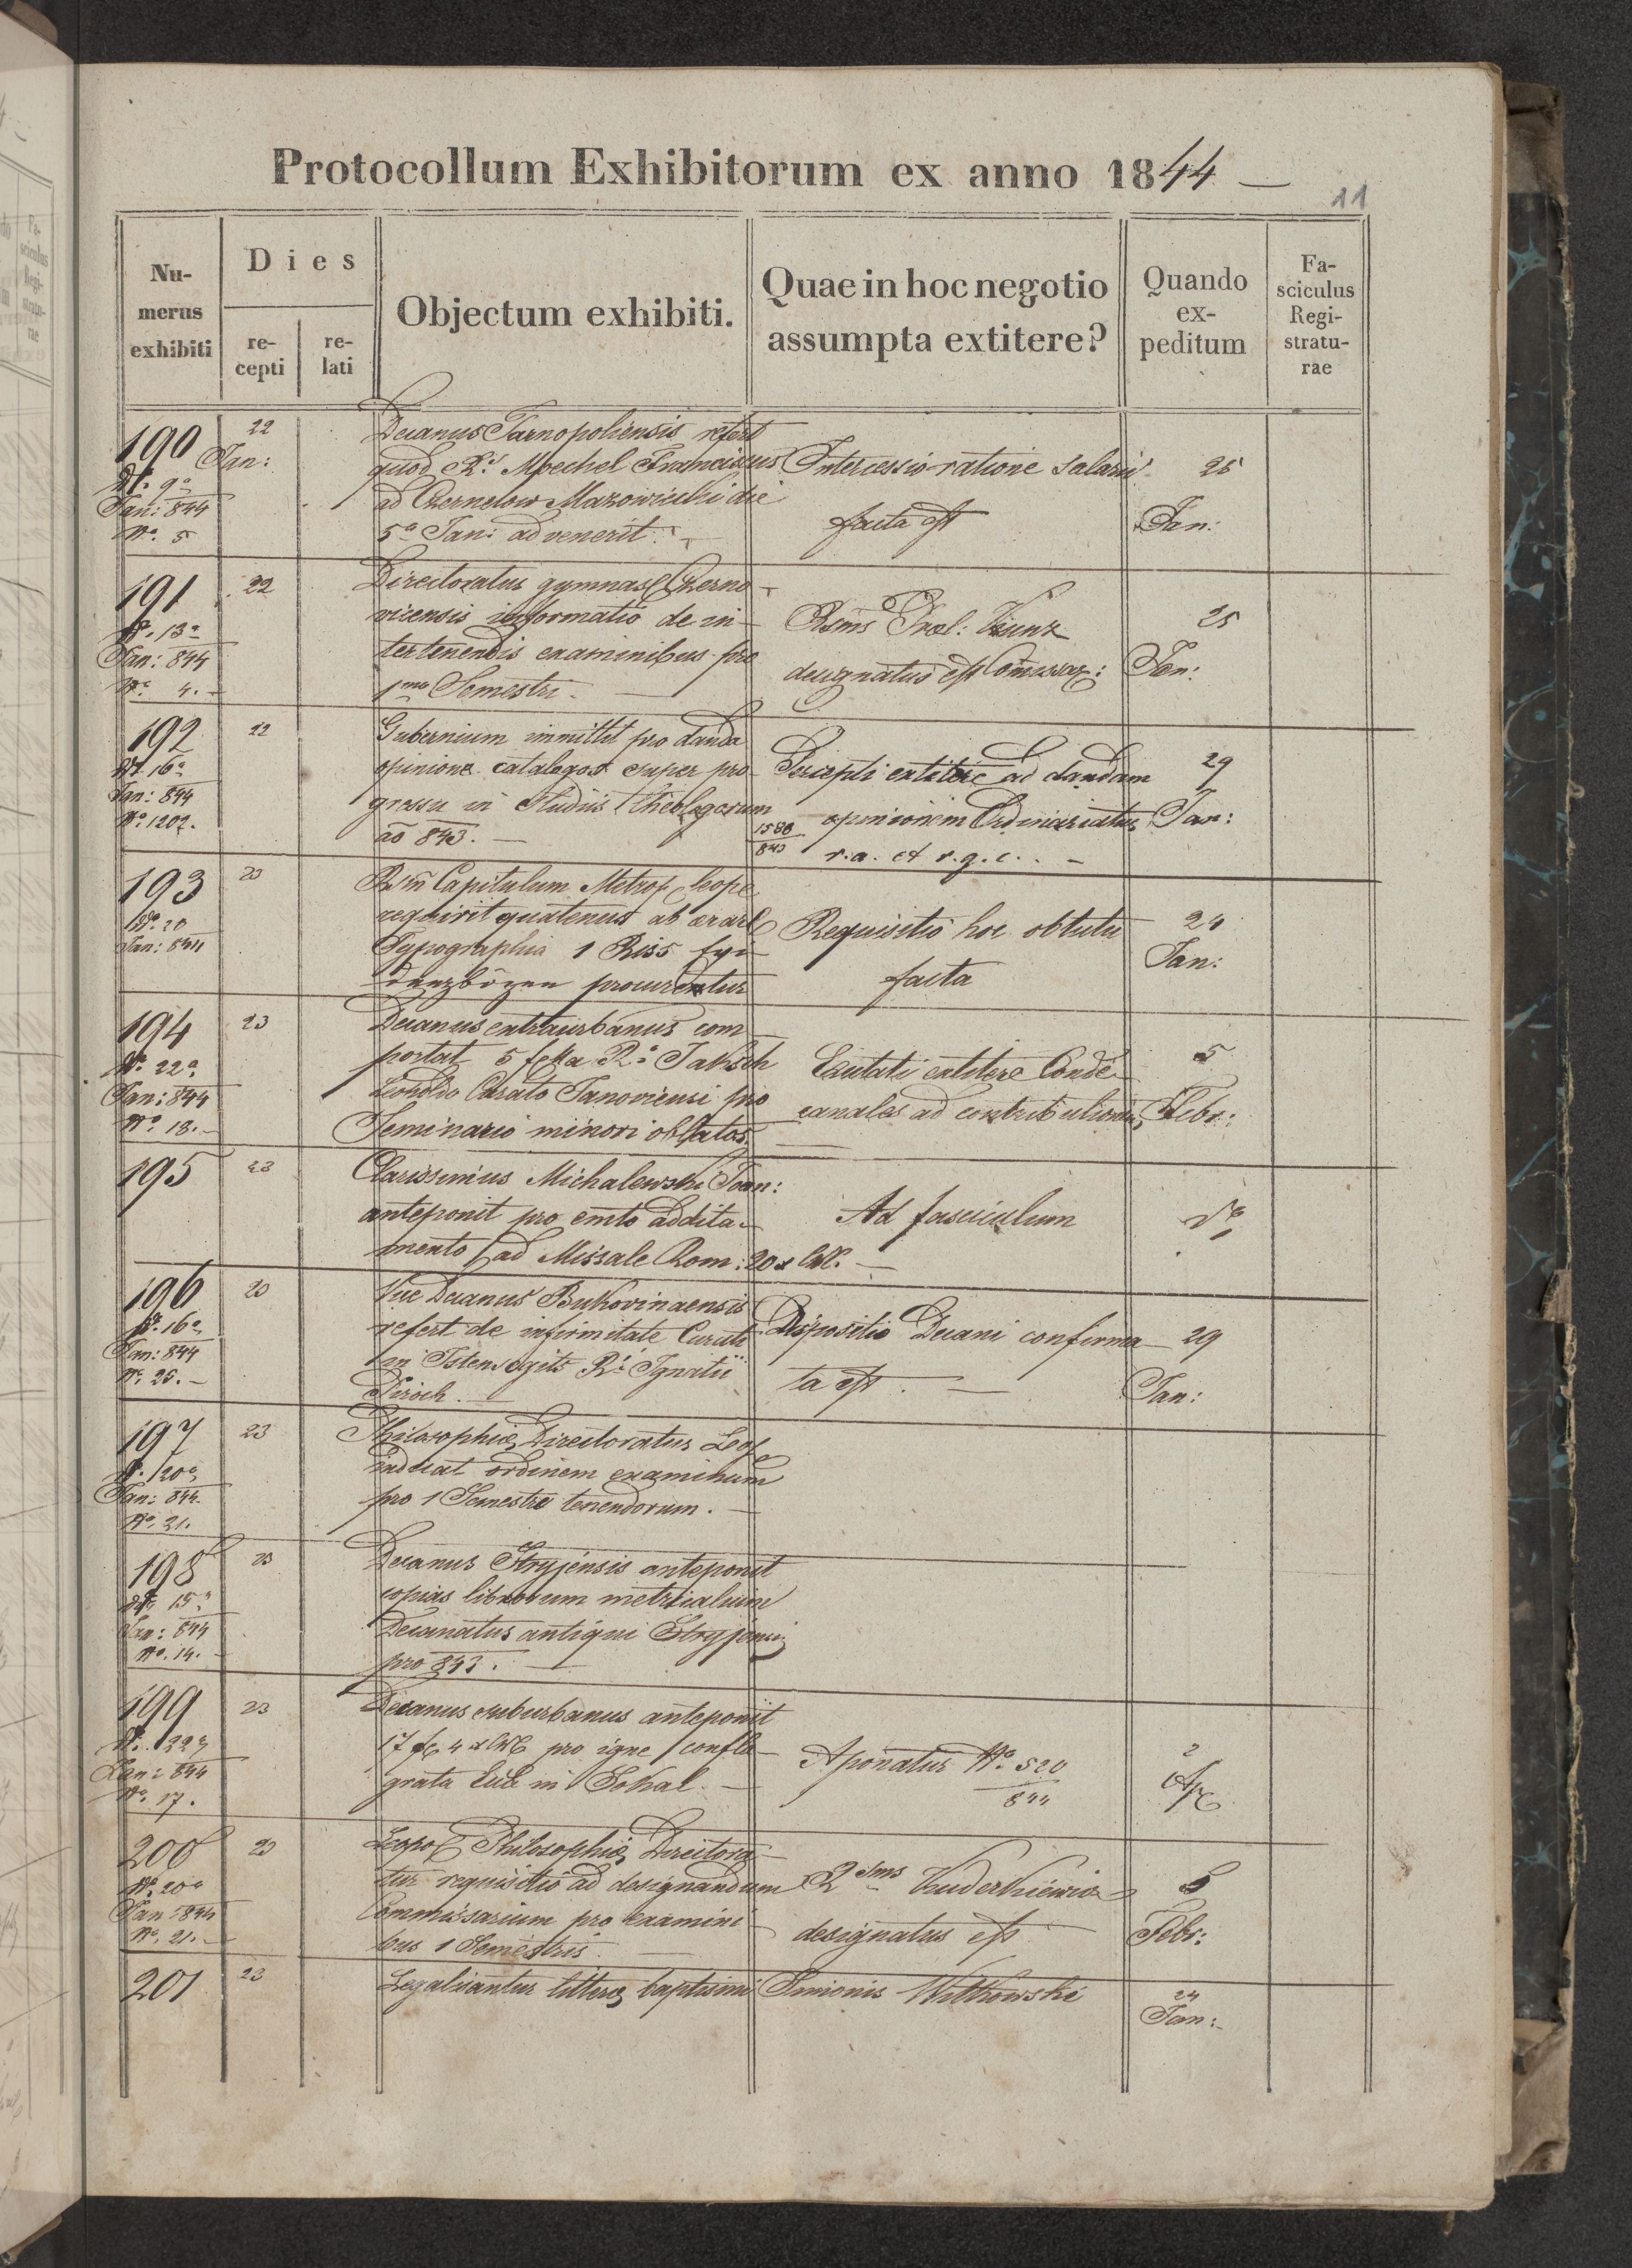 Protocollum Exhibitorum ex anno 1844 —
11
Nu-
merus
exhibiti
Dies
re-
cepti
re-
lati
Objectum exhibiti.
Quae in hoc negotio
assumpta extitere?
Quando
ex-
peditum
Fa-
sciculus
Regi-
stratu-
rae
190
22
Jan:
9a
Jan: 844
No. 5
Decanus Tarnopoliensis refert
quod Rs. Moechel Franciscus
ad Czernelow Mazowiecki die
5a Jan: advenerit.
Intercessio ratione salarii
facta est
25
Jan:
191
22
13a
Jan: 844
No. 4.
Directoratus gymnas Czerno-
vicensis informatio de in-
tertenendis examinibus pro
1mo Semestri.
Rsms Prael: Kunz
designatus est Comissar:
25
Jan:
192
22
16a
Jan: 844
No. 1202.
Gubernium inmittit pro danda
opinione catalogos super pro-
gressu in studiis theologorum
ao 843.
Percepti extitere ad dandam
opinionem Ordinariatus
r.a. et r.g.c.
1586
843
29
Jan:
193
23
20
Jan: 844
Rsm Capitulum Metrop Leop
requirit quatenus ab aerar
Typographia 1 Riss
procurentur
Requisitio hoc obtutu
facta
24
Jan:
194
23
22a
Jan: 844
No. 18.
Decanus extraurbanus com-
portat 5 Rs. Jaksch
Leopoldo Curato Janoviensi pro
Seminario minori oblatos.
extitere Conde-
canales ad contributionem
5
Febr:
195
23
Clarissimus Michalewski Joan:
anteponit pro emto addita-
mento ad Missale Rom: 20 x CM.
Ad fasciculum
196
23
16a
Jan: 844
No. 25.
Vice Decanus Bukovinaensis
refert de infirmitate Curati
in Istensegits Rs. Ignatii
Dispositio Decani confirma-
ta est.
29
Jan:
197
23
20a
Jan: 844.
No. 21.
Philosophiae Directoratus Leop
indicat ordinem examinum
pro 1 Semestre tenendorum.
198
23
15a
Jan: 844
No. 14.
Decanus Stryjensis anteponit
copias librorum metricalium
Decanatus antiqui Stryjensis
pro 843.
199
23
22a
Jan: 844
No. 17.
Decanus suburbanus anteponit
17 f 4 x CM pro igne confla-
grata in Sokal.
Aponatur No. 520
844
2
Apr
200
23
No. 20a
Jan: 844
No. 21.
Leopol Philosophiae Directora-
tus requisitio ad designandum
Commissarium pro examini-
bus 1 Semestris.
Rsms
designatus est
5
Febr:
201
23
Legalisantur litterae baptismi Simonis Witkowski
24
Jan: